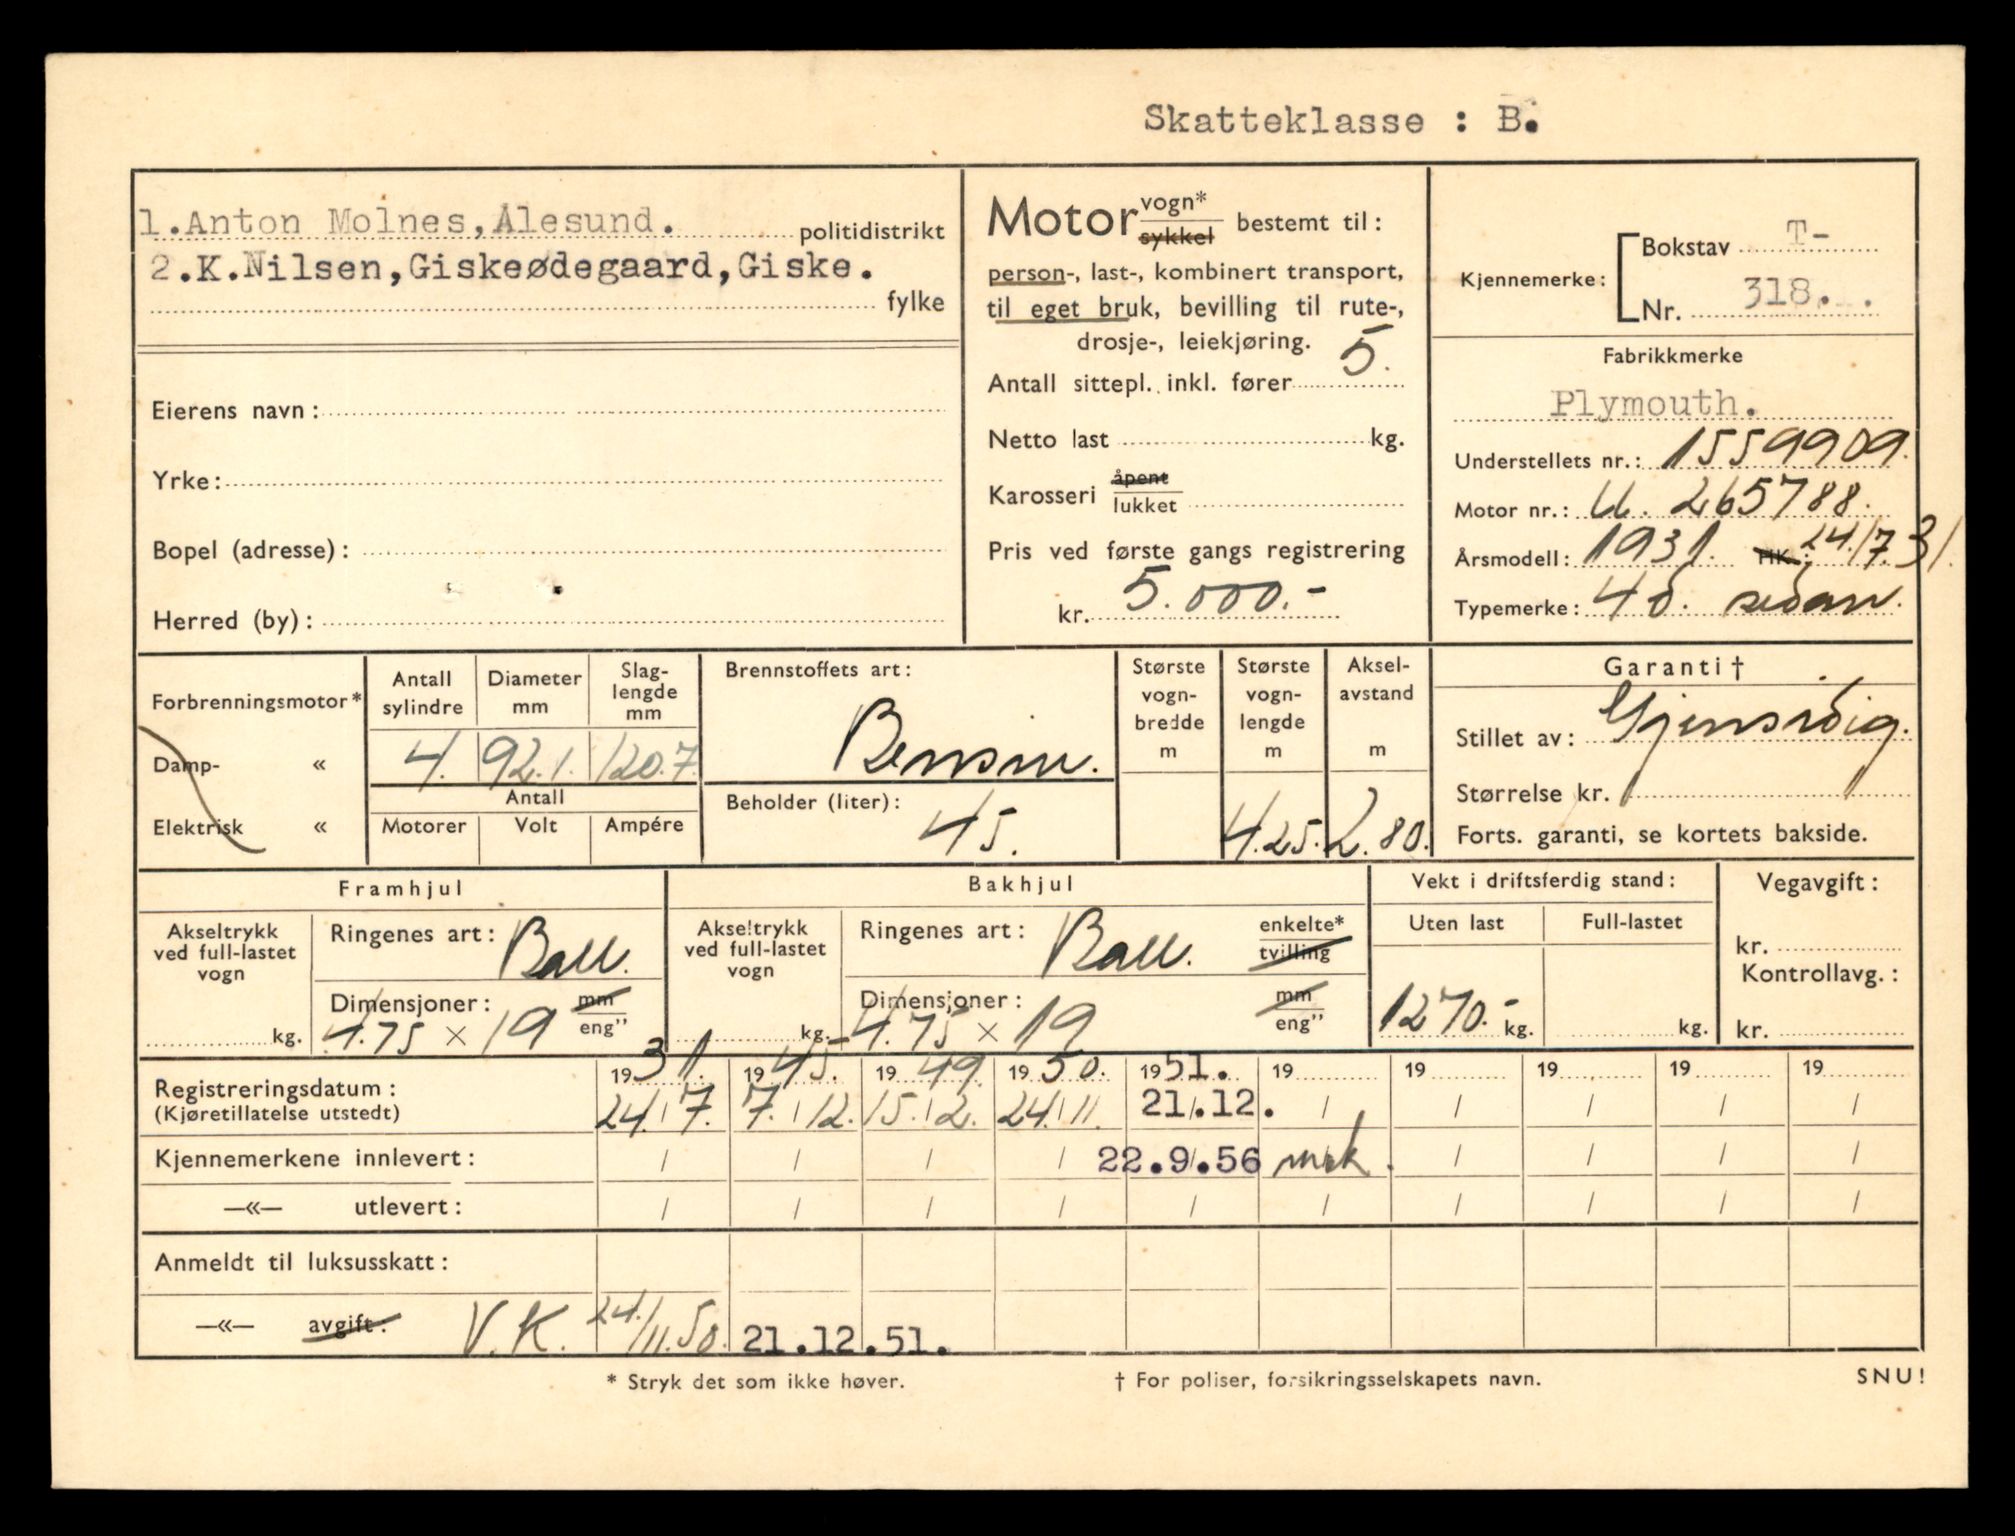 Skatteklasse : B.
1.Anton Molnes,Ålesund. politidistrikt
2.K.Nilsen,Giskeødegaard,Giske.
fylke
Eierens navn:
Yrke:
Bopel (adresse):
Herred (by):
Motor vogn*
sykkel bestemt til:
person-, last-, kombinert transport,
til eget bruk, bevilling til rute-,
drosje-, leiekjøring.
Antall sittepl. inkl. fører 5.
Netto last kg.
Karosseri åpent
lukket
Pris ved første gangs registrering
kr. 5.000.-
Kjennemerke: Bokstav T-
Nr. 318.
Fabrikkmerke
Plymouth.
Understellets nr.: 1559909.
Motor nr.: U. 265788.
Årsmodell: 1931. HK.: 24./7.31.
Typemerke: 40. sedan.
Forbrenningsmotor*
Damp- «
Elektrisk «
Antall sylindre Diameter mm Slag-lengde mm
4. 92.1. 120.7.
Antall
Motorer Volt Ampére
Brennstoffets art:
Bensin.
Beholder (liter):
45.
Største vogn-bredde m
Største vogn-lengde m
4.25.
Aksel-avstand m
2.80.
Garanti†
Stillet av: Gjensidig.
Størrelse kr.
Forts. garanti, se kortets bakside.
Framhjul
Akseltrykk
ved full-lastet
vogn
kg.
Ringenes art: Ball.
Dimensjoner: mm
eng”
4.75 × 19
Bakhjul
Akseltrykk
ved full-lastet
vogn
kg.
Ringenes art: Ball. enkelte*
tvilling
Dimensjoner: mm
eng”
4.75 × 19
Vekt i driftsferdig stand:
Uten last Full-lastet
1270.- kg. kg.
Vegavgift:
kr.
Kontrollavg.:
kr.
Registreringsdatum: 1931. 1945. 1949. 1950. 1951. 19 19 19 19 19
(Kjøretillatelse utstedt) 24./7. 7./12. 15./2. 24./11. 21/.12. / / / / /
Kjennemerkene innlevert: / / / / 22.9/.56 / / / /
—«— utlevert: / / / / / / / / / /
Anmeldt til luksusskatt:
—«— avgift: V.K. 24./11.50. 21.12.51.
* Stryk det som ikke høver. † For poliser, forsikringsselskapets navn. SNU!